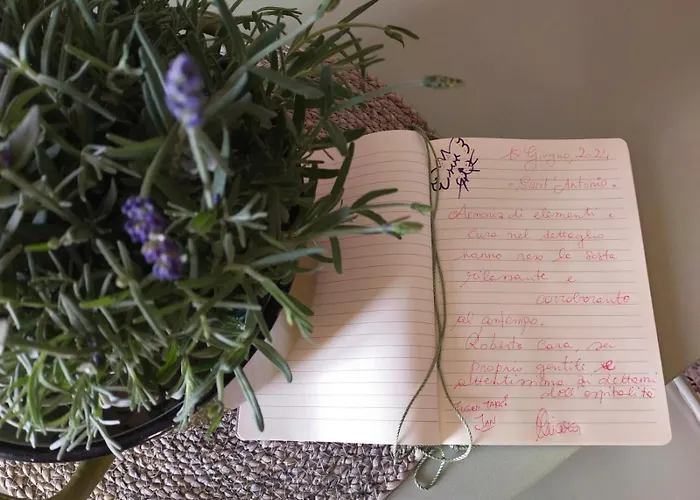 Giugno 2024
"Sant'Antonio"
Armonia di elementi e
cura nel dettaglio
hanno reso la sosta
rilassante e
corroborante
al contempo.
Roberta Cara, sei
proprio gentile e
attentissima ai dettami
dell'ospitalità
JAN